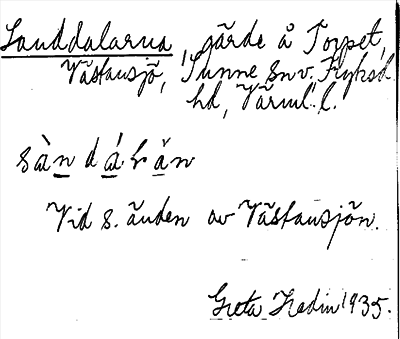 Sanddalarna, gärde å Torpet,
Västansjö, Sunne sn v, Fryksd.
hd, Värml. l.
sàn dá‐ra̤n
Vid s. änden av Västansjön.
Greta Hedin 1935.